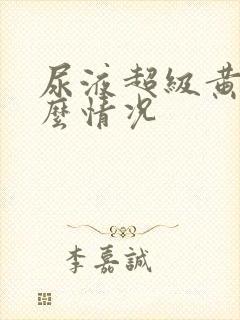 尿液超級黃
麼情况
李嘉誠